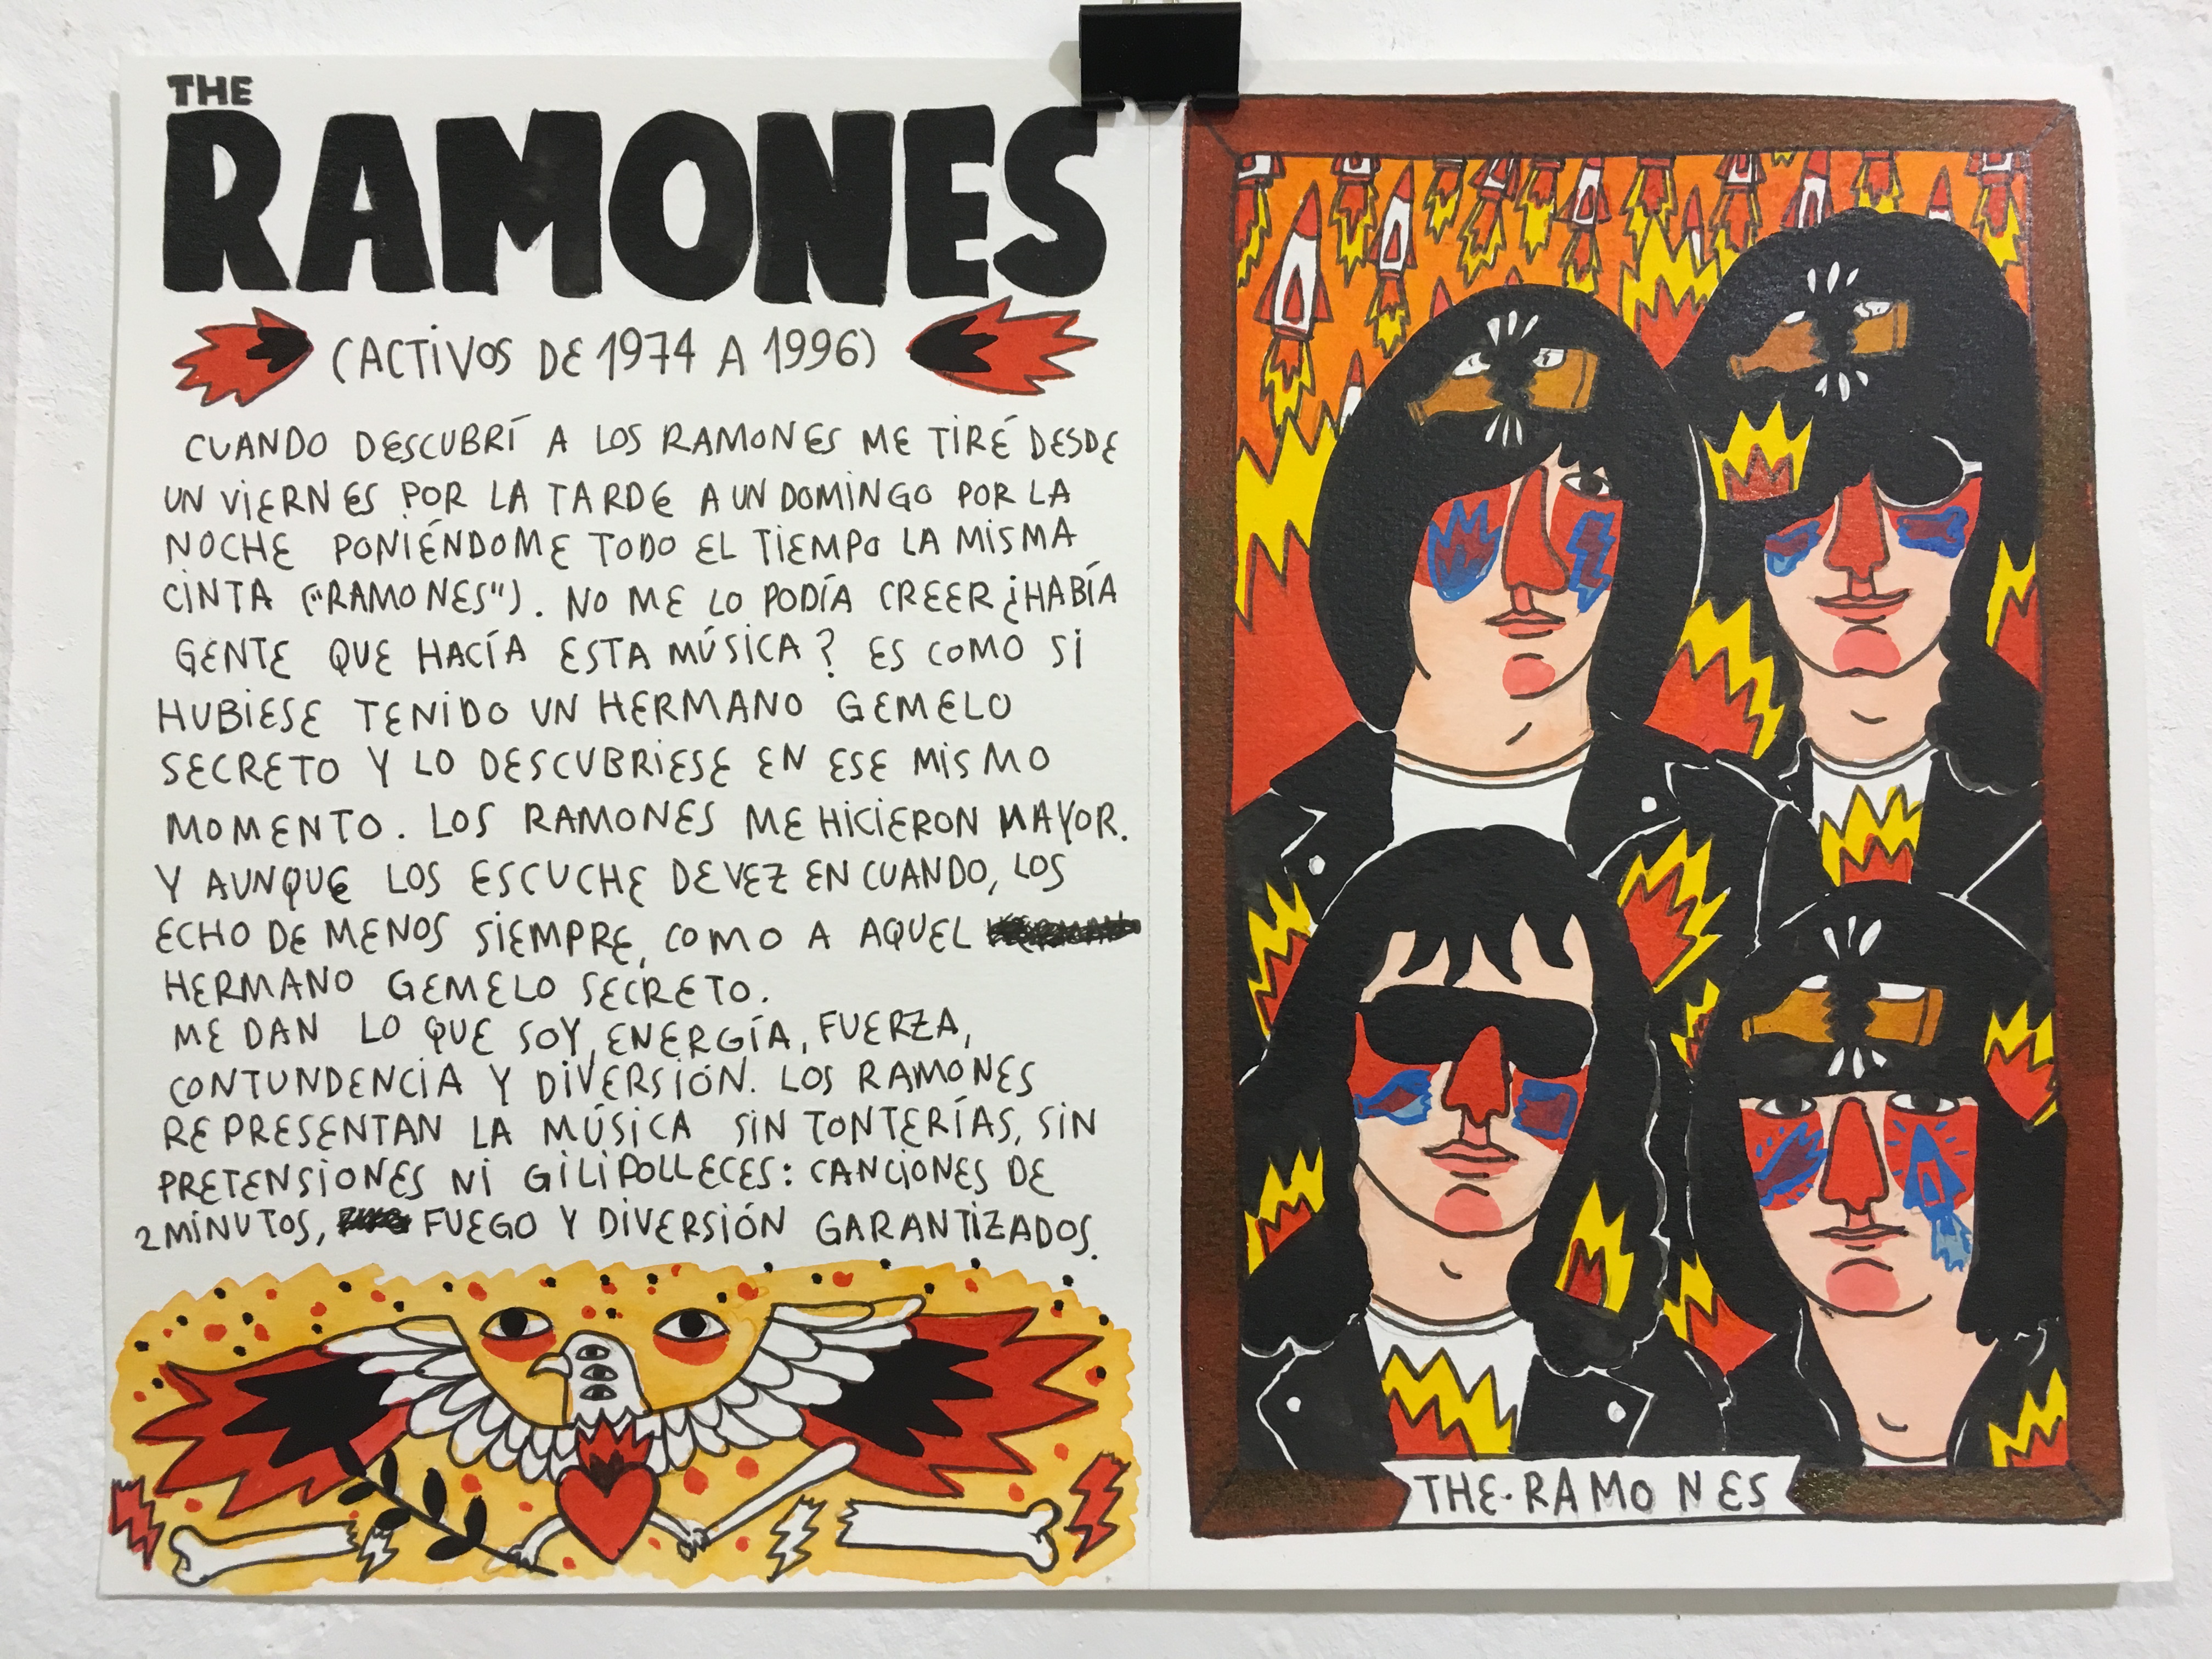 THE
RAMONES
(ACTIVOS DE 1974 A 1996)
CUANDO DESCUBRÍ A LOS RAMONES ME TIRÉ DESDE
UN VIERNES POR LA TARDE A UN DOMINGO POR LA
NOCHE PONIÉNDOME TODO EL TIEMPO LA MISMA
CINTA ("RAMONES"). NO ME LO PODÍA CREER ¿HABÍA
GENTE QUE HACÍA ESTA MÚSICA? ES COMO SI
HUBIESE TENIDO UN HERMANO GEMELO
SECRETO Y LO DESCUBRIESE EN ESE MISMO
MOMENTO. LOS RAMONES ME HICIERON MAYOR.
Y AUNQUE LOS ESCUCHE DE VEZ EN CUANDO, LOS
ECHO DE MENOS SIEMPRE, COMO A AQUEL
HERMANO GEMELO SECRETO.
ME DAN LO QUE SOY, ENERGÍA, FUERZA,
CONTUNDENCIA Y DIVERSIÓN. LOS RAMONES
REPRESENTAN LA MÚSICA SIN TONTERÍAS, SIN
PRETENSIONES NI GILIPOLLECES: CANCIONES DE
2 MINUTOS, FUEGO Y DIVERSIÓN GARANTIZADOS.
THE·RAMONES